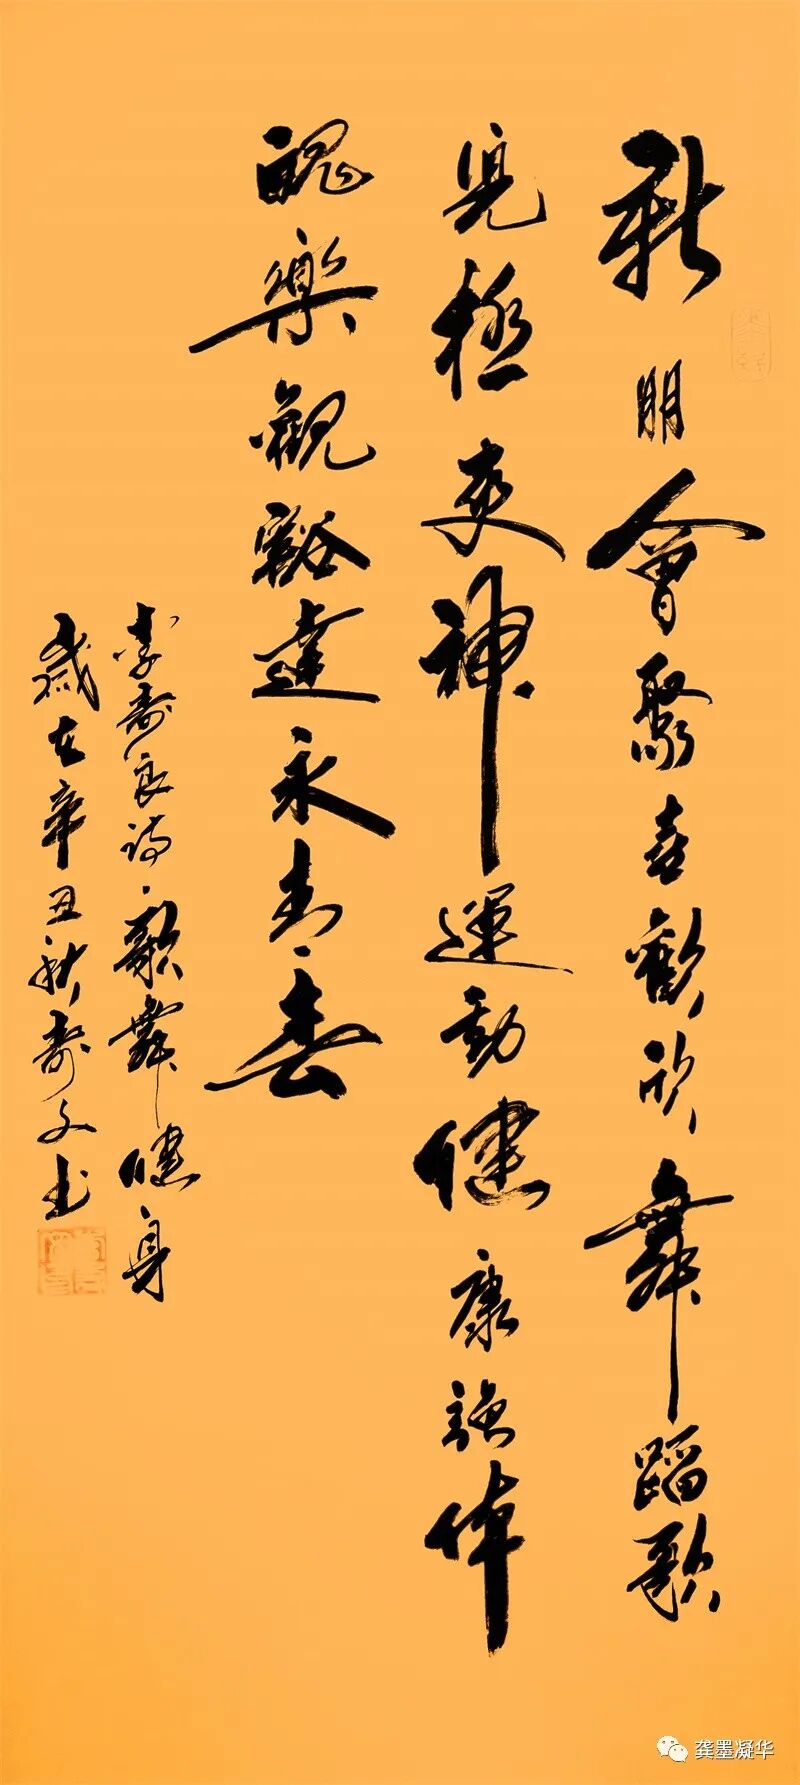 新朋會聚喜歡欣舞蹈歌
兒極爽神運動健康強体
魄樂觀豁達永青春
李壽良詩歌舞健身
歲在辛丑秋壽文书
龚墨凝华